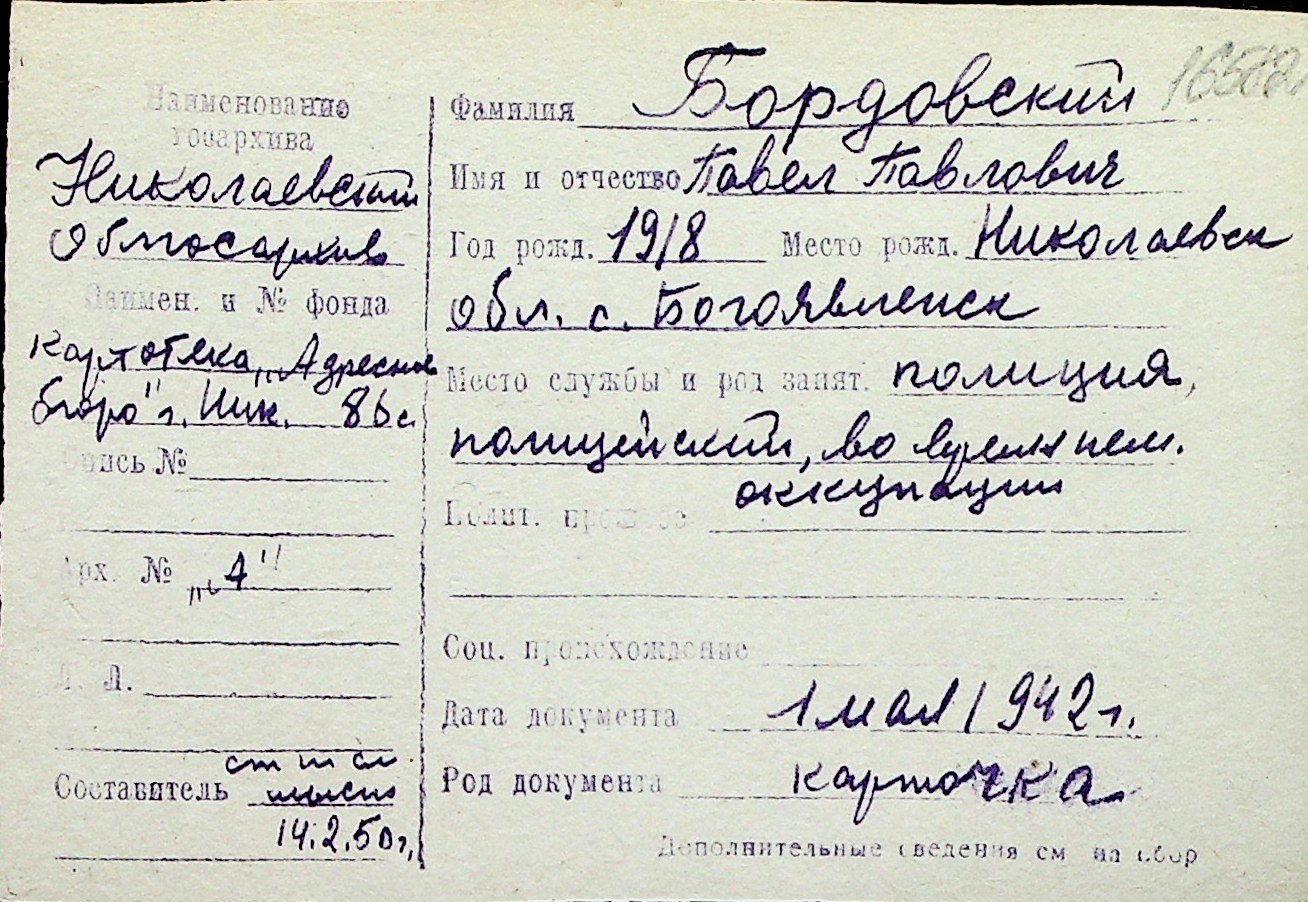 Наименование
госархива
Николаевский
Облгосархив
Наимен. и № фонда
картотека „Адресное
бюро" г. Ник. 86 с
Опись №
Арх. № „А"
Л. Л.
Составитель
14.2.50 г.
Фамилия Бордовский
Имя и отчество Павел Павлович
Год рожд. 1918 Место рожд. Николаевск
обл. с. Богоявленск
Место службы и род занят. полиция,
полицейский, во время нем.
оккупации
Полит. прошлое
Соц. происхождение
Дата документа 1 мая 1942 г.
Род документа карточка
Дополнительные сведения см на обор